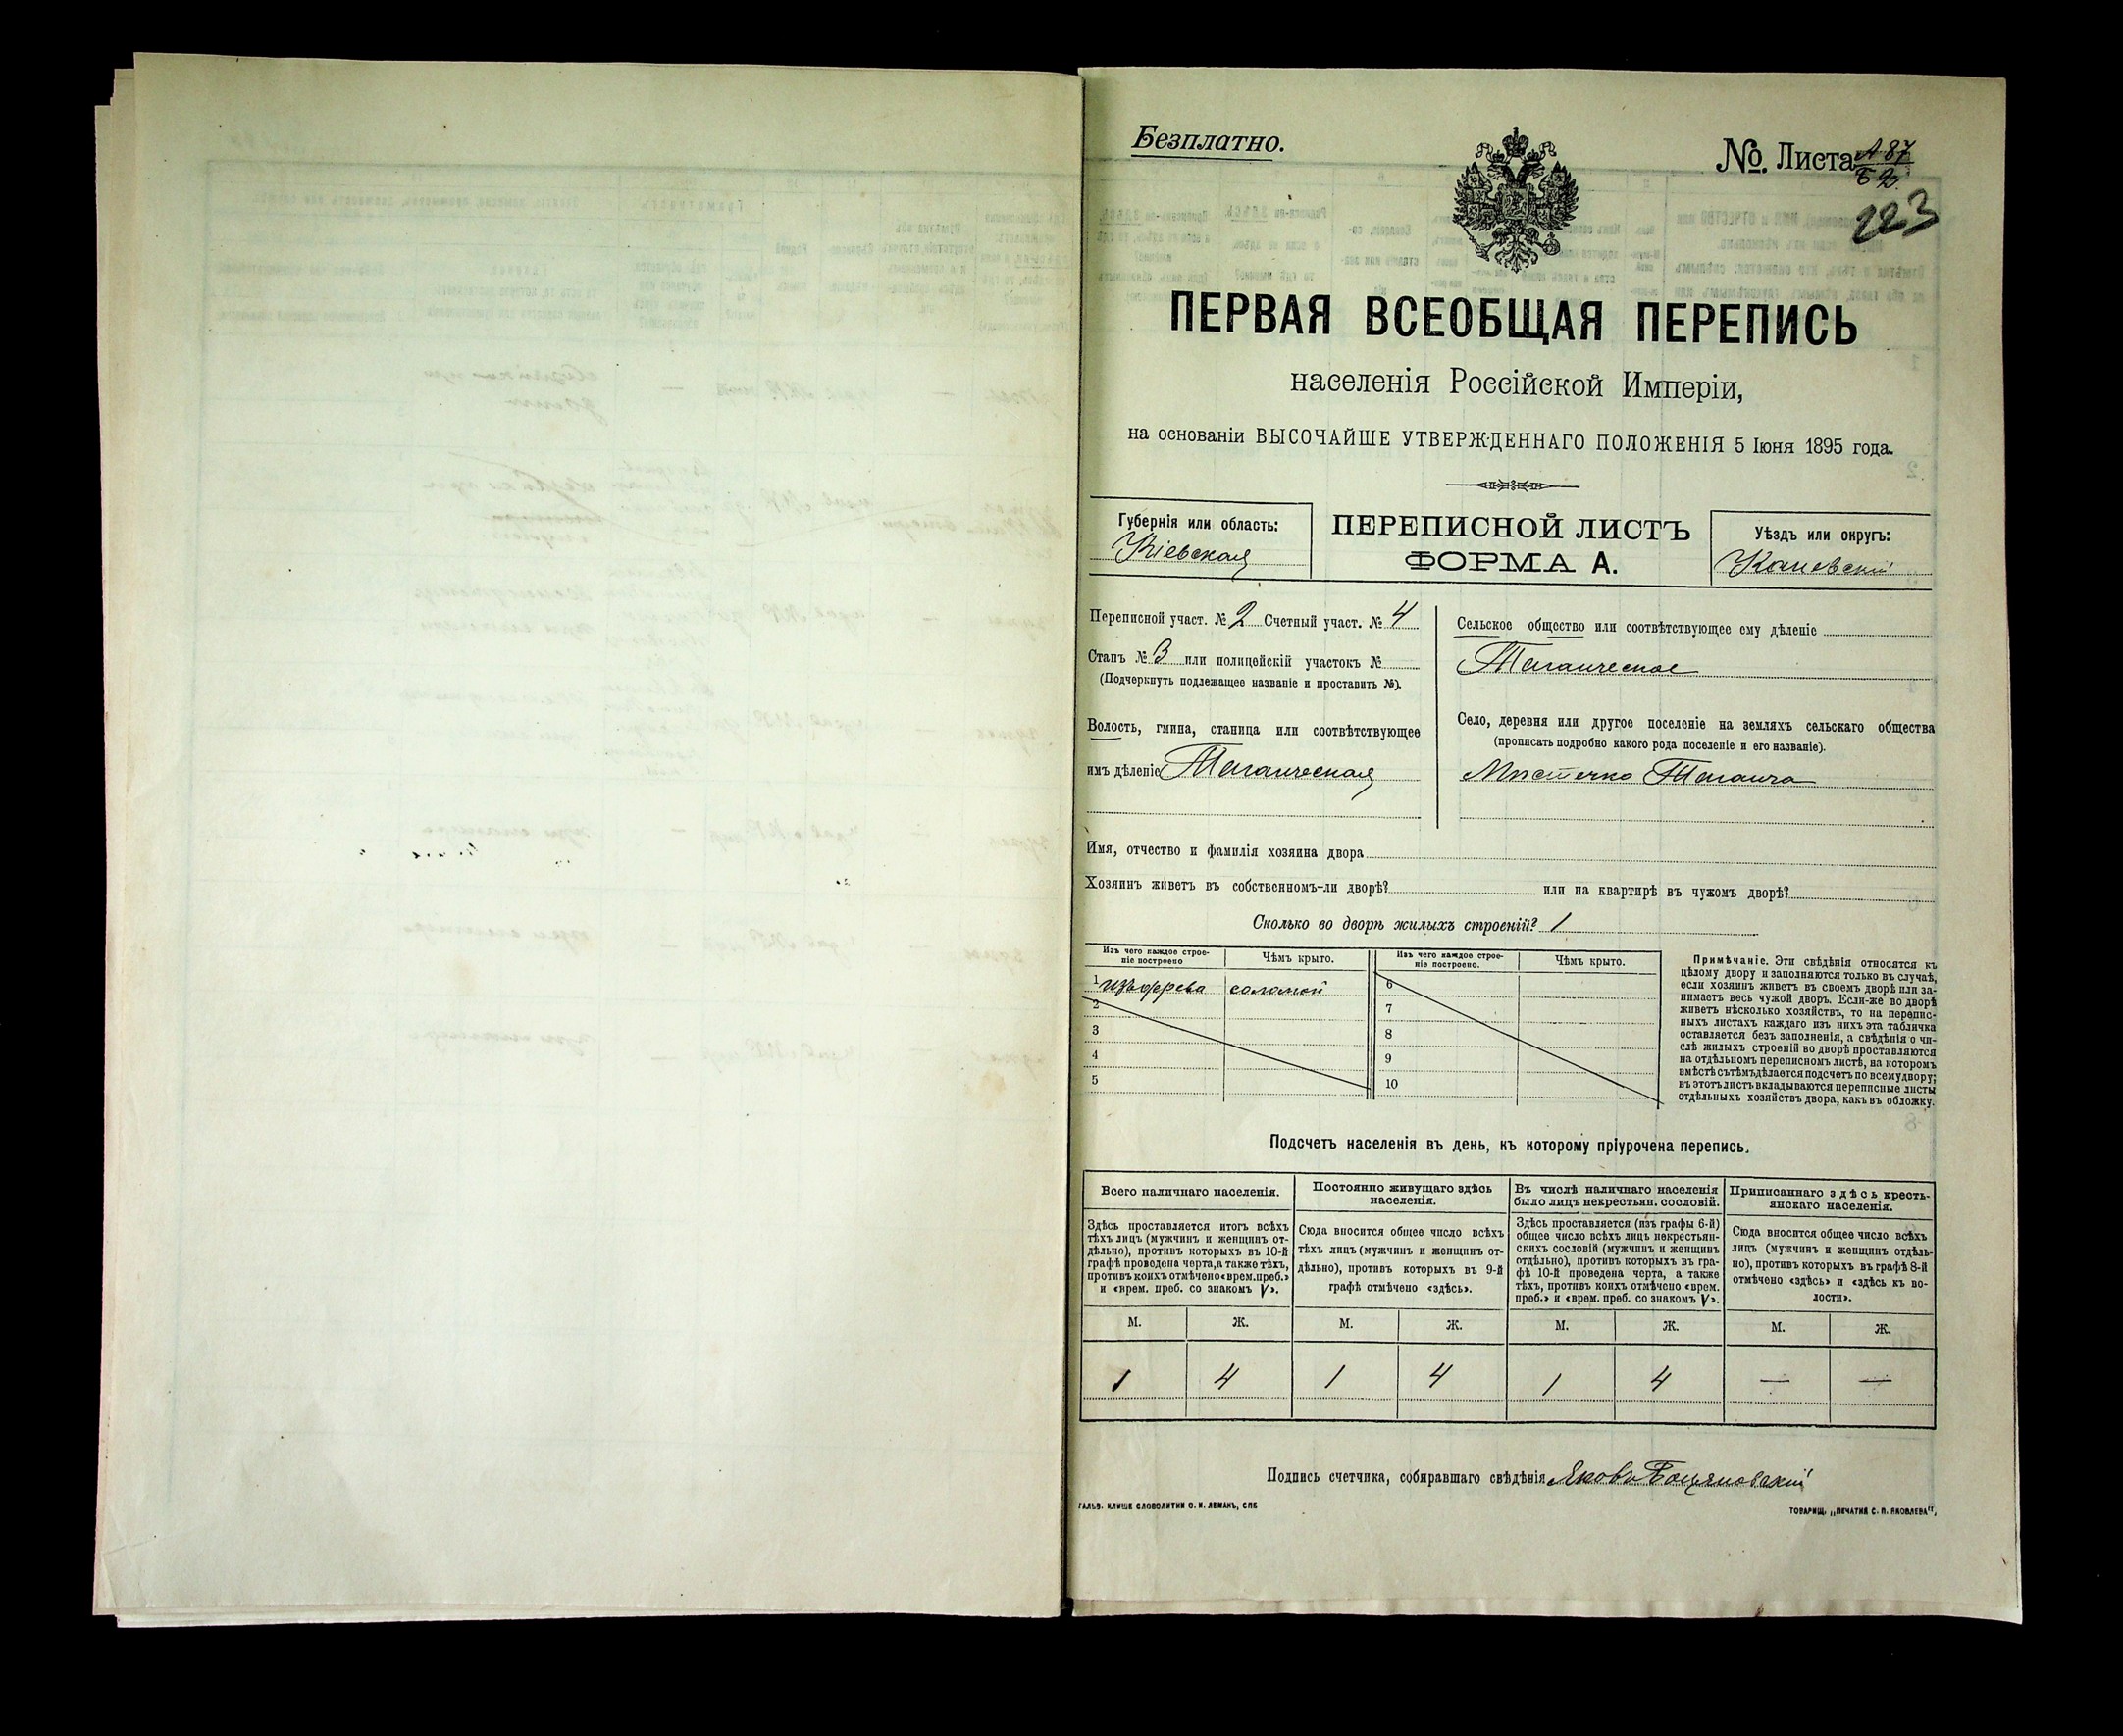 Безплатно.
№. Листа А 87
Б 2.
223
ПЕРВАЯ ВСЕОБЩАЯ ПЕРЕПИСЬ
населенія Россійской Имперіи,
на основаніи ВЫСОЧАЙШЕ УТВЕРЖДЕННАГО ПОЛОЖЕНІЯ 5 Іюня 1895 года.
Губернія или область:
Кіевская
ПЕРЕПИСНОЙ ЛИСТЪ
ФОРМА А.
Уѣздъ или округъ:
Каневскій
Переписной участ. № 2 Счетный участ. № 4
Станъ № 3 или полицейскій участокъ №
(Подчеркнуть подлежащее названіе и проставить №).
Волость, гмина, станица или соотвѣтствующее
имъ дѣленіе Таганческая
Сельское общество или соотвѣтствующее ему дѣленіе
Таганческое
Село, деревня или другое поселеніе на земляхъ сельскаго общества
(прописать подробно какого рода поселеніе и его названіе).
Мистечко Таганча
Имя, отчество и фамилія хозяина двора
Хозяинъ живетъ въ собственномъ-ли дворѣ? или на квартирѣ въ чужомъ дворѣ?
Сколько во дворѣ жилыхъ строеній? 1
Изъ чего каждое строе-
ніе построено
Чѣмъ крыто.
Изъ чего каждое строе-
ніе построено.
Чѣмъ крыто.
1 изъ дерева соломой 6
2 7
3 8
4 9
5 10
Примѣчаніе. Эти свѣдѣнія относятся къ
цѣлому двору и заполняются только въ случаѣ,
если хозяинъ живетъ въ своемъ дворѣ или за-
нимаетъ весь чужой дворъ. Если-же во дворѣ
живетъ нѣсколько хозяйствъ, то на перепис-
ныхъ листахъ каждаго изъ нихъ эта табличка
оставляется безъ заполненія, а свѣдѣнія о чи-
слѣ жилыхъ строеній во дворѣ проставляются
на отдѣльномъ переписномъ листѣ, на которомъ
вмѣстѣ съ тѣмъ дѣлается подсчетъ по всему двору;
въ этотъ листъ вкладываются переписные листы
отдѣльныхъ хозяйствъ двора, какъ въ обложку.
Подсчетъ населенія въ день, къ которому пріурочена перепись.
Всего наличнаго населенія.
Здѣсь проставляется итогъ всѣхъ
тѣхъ лицъ (мужчинъ и женщинъ от-
дѣльно), противъ которыхъ въ 10-й
графѣ проведена черта, а также тѣхъ,
противъ коихъ отмѣчено «врем. преб.»
и «врем. преб. со знакомъ V».
Постоянно живущаго здѣсь
населенія.
Сюда вносится общее число всѣхъ
тѣхъ лицъ (мужчинъ и женщинъ от-
дѣльно), противъ которыхъ въ 9-й
графѣ отмѣчено «здѣсь».
Въ числѣ наличнаго населенія
было лицъ некрестьян. сословій.
Здѣсь проставляется (изъ графы 6-й)
общее число всѣхъ лицъ некрестьян-
скихъ сословій (мужчинъ и женщинъ
отдѣльно), противъ которыхъ въ гра-
фѣ 10-й проведена черта, а также
тѣхъ, противъ коихъ отмѣчено «врем.
преб.» и «врем. преб. со знакомъ V».
Приписаннаго здѣсь кресть-
янскаго населенія.
Сюда вносится общее число всѣхъ
лицъ (мужчинъ и женщинъ отдѣль-
но), противъ которыхъ въ графѣ 8-й
отмѣчено «здѣсь» и «здѣсь къ во-
лости».
М. Ж. М. Ж. М. Ж. М. Ж.
1 4 1 4 1 4 — —
Подпись счетчика, собиравшаго свѣдѣнія Яковъ Боцяновскій
ГАЛЬВ. КЛИШЕ СЛОВОЛИТНИ О. И. ЛЕМАНЪ, СПБ
ТОВАРИЩ. „ПЕЧАТНЯ С. П. ЯКОВЛЕВА".